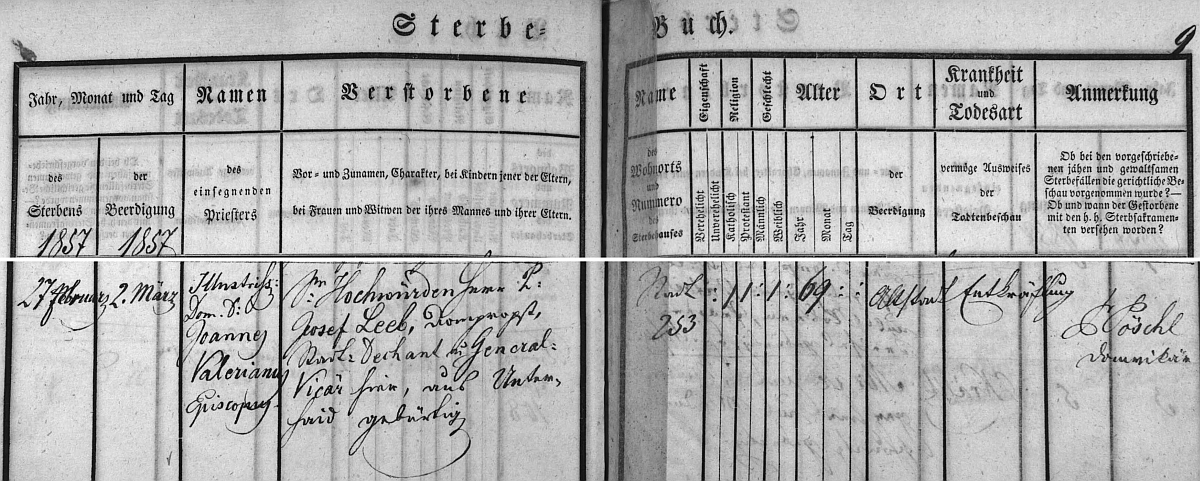 Sterbe-Buch.
9
Jahr, Monat und Tag
des Sterbens
1857
der Beerdigung
1857
Namen
des
einsegnenden
Priesters
Verstorbene
Vor- und Zunamen, Charakter, bei Kindern jener der Eltern,
bei Frauen und Witwen der ihres Mannes und ihrer Eltern.
Name
des
Wohnorts
und
Nummero
des
Sterbehauses
Eigenschaft
Verehelicht
Unverehelicht
Religion
Katholisch
Protestant
Geschlecht
Männlich
Weiblich
Alter
Jahr
Monat
Tag
Ort
der
Beerdigung
Krankheit
und
Todesart
vermöge Ausweises
der
Todtenbeschau
Anmerkung
Ob bei den vorgeschriebe-
nen jähen und gewaltsamen
Sterbefällen die gerichtliche Be-
schau vorgenommen wurde? —
Ob und wann der Gestorbene
mit den h. h. Sterbsakramen-
ten versehen worden?
27 Februar
2. März
Illustriss:
Dom. D. D.
Joannes
Valerianus
Episcopus.
Sr: Hochwürden Herr P:
Josef Leeb, Dompropst,
Stadt-Dechant u. General-
Vicär hier, aus Unter-
haid gebürtig
Stadt
253
: 1 1 : 1 : 69 : :
Altstadt
Entkräftung
Pöschl
Domvikär